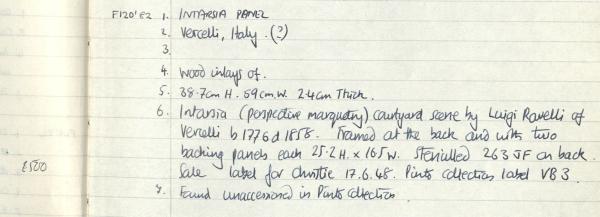 F120'82 1. INTARSIA PANEL
2. Vercelli, Italy. (?)
3.
4. Wood inlays of.
5. 38.7cm H. 59cm.W. 2.4cm Thick.
6. Intarsia (perspective marquetry) courtyard scene by Luigi Ravelli of
Vercelli b 1776 d 1858. Framed at the back and with two
backing panels each 25.2 H. x 16.5 W. Stencilled 263 JF on back.
Sale label for Christie 17.6.48. Pinto collection label VB3.
£500
8. Found unaccessioned in Pinto Collection.